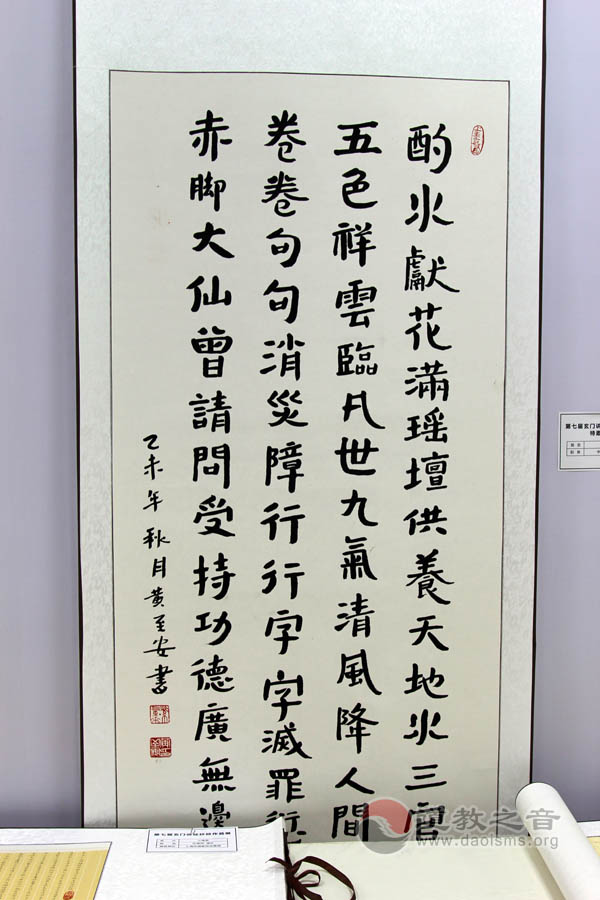 酌水獻花滿瑶壇供養天地水三官
五色祥雲臨凡世九氣清風降人間
卷卷句句消災障行行字字滅罪
赤脚大仙曾請問受持功德廣無邊
乙未年秋月黄至安書
第七届玄门讲
特邀
第七届玄门讲经
道教之音
www.daoisms.org